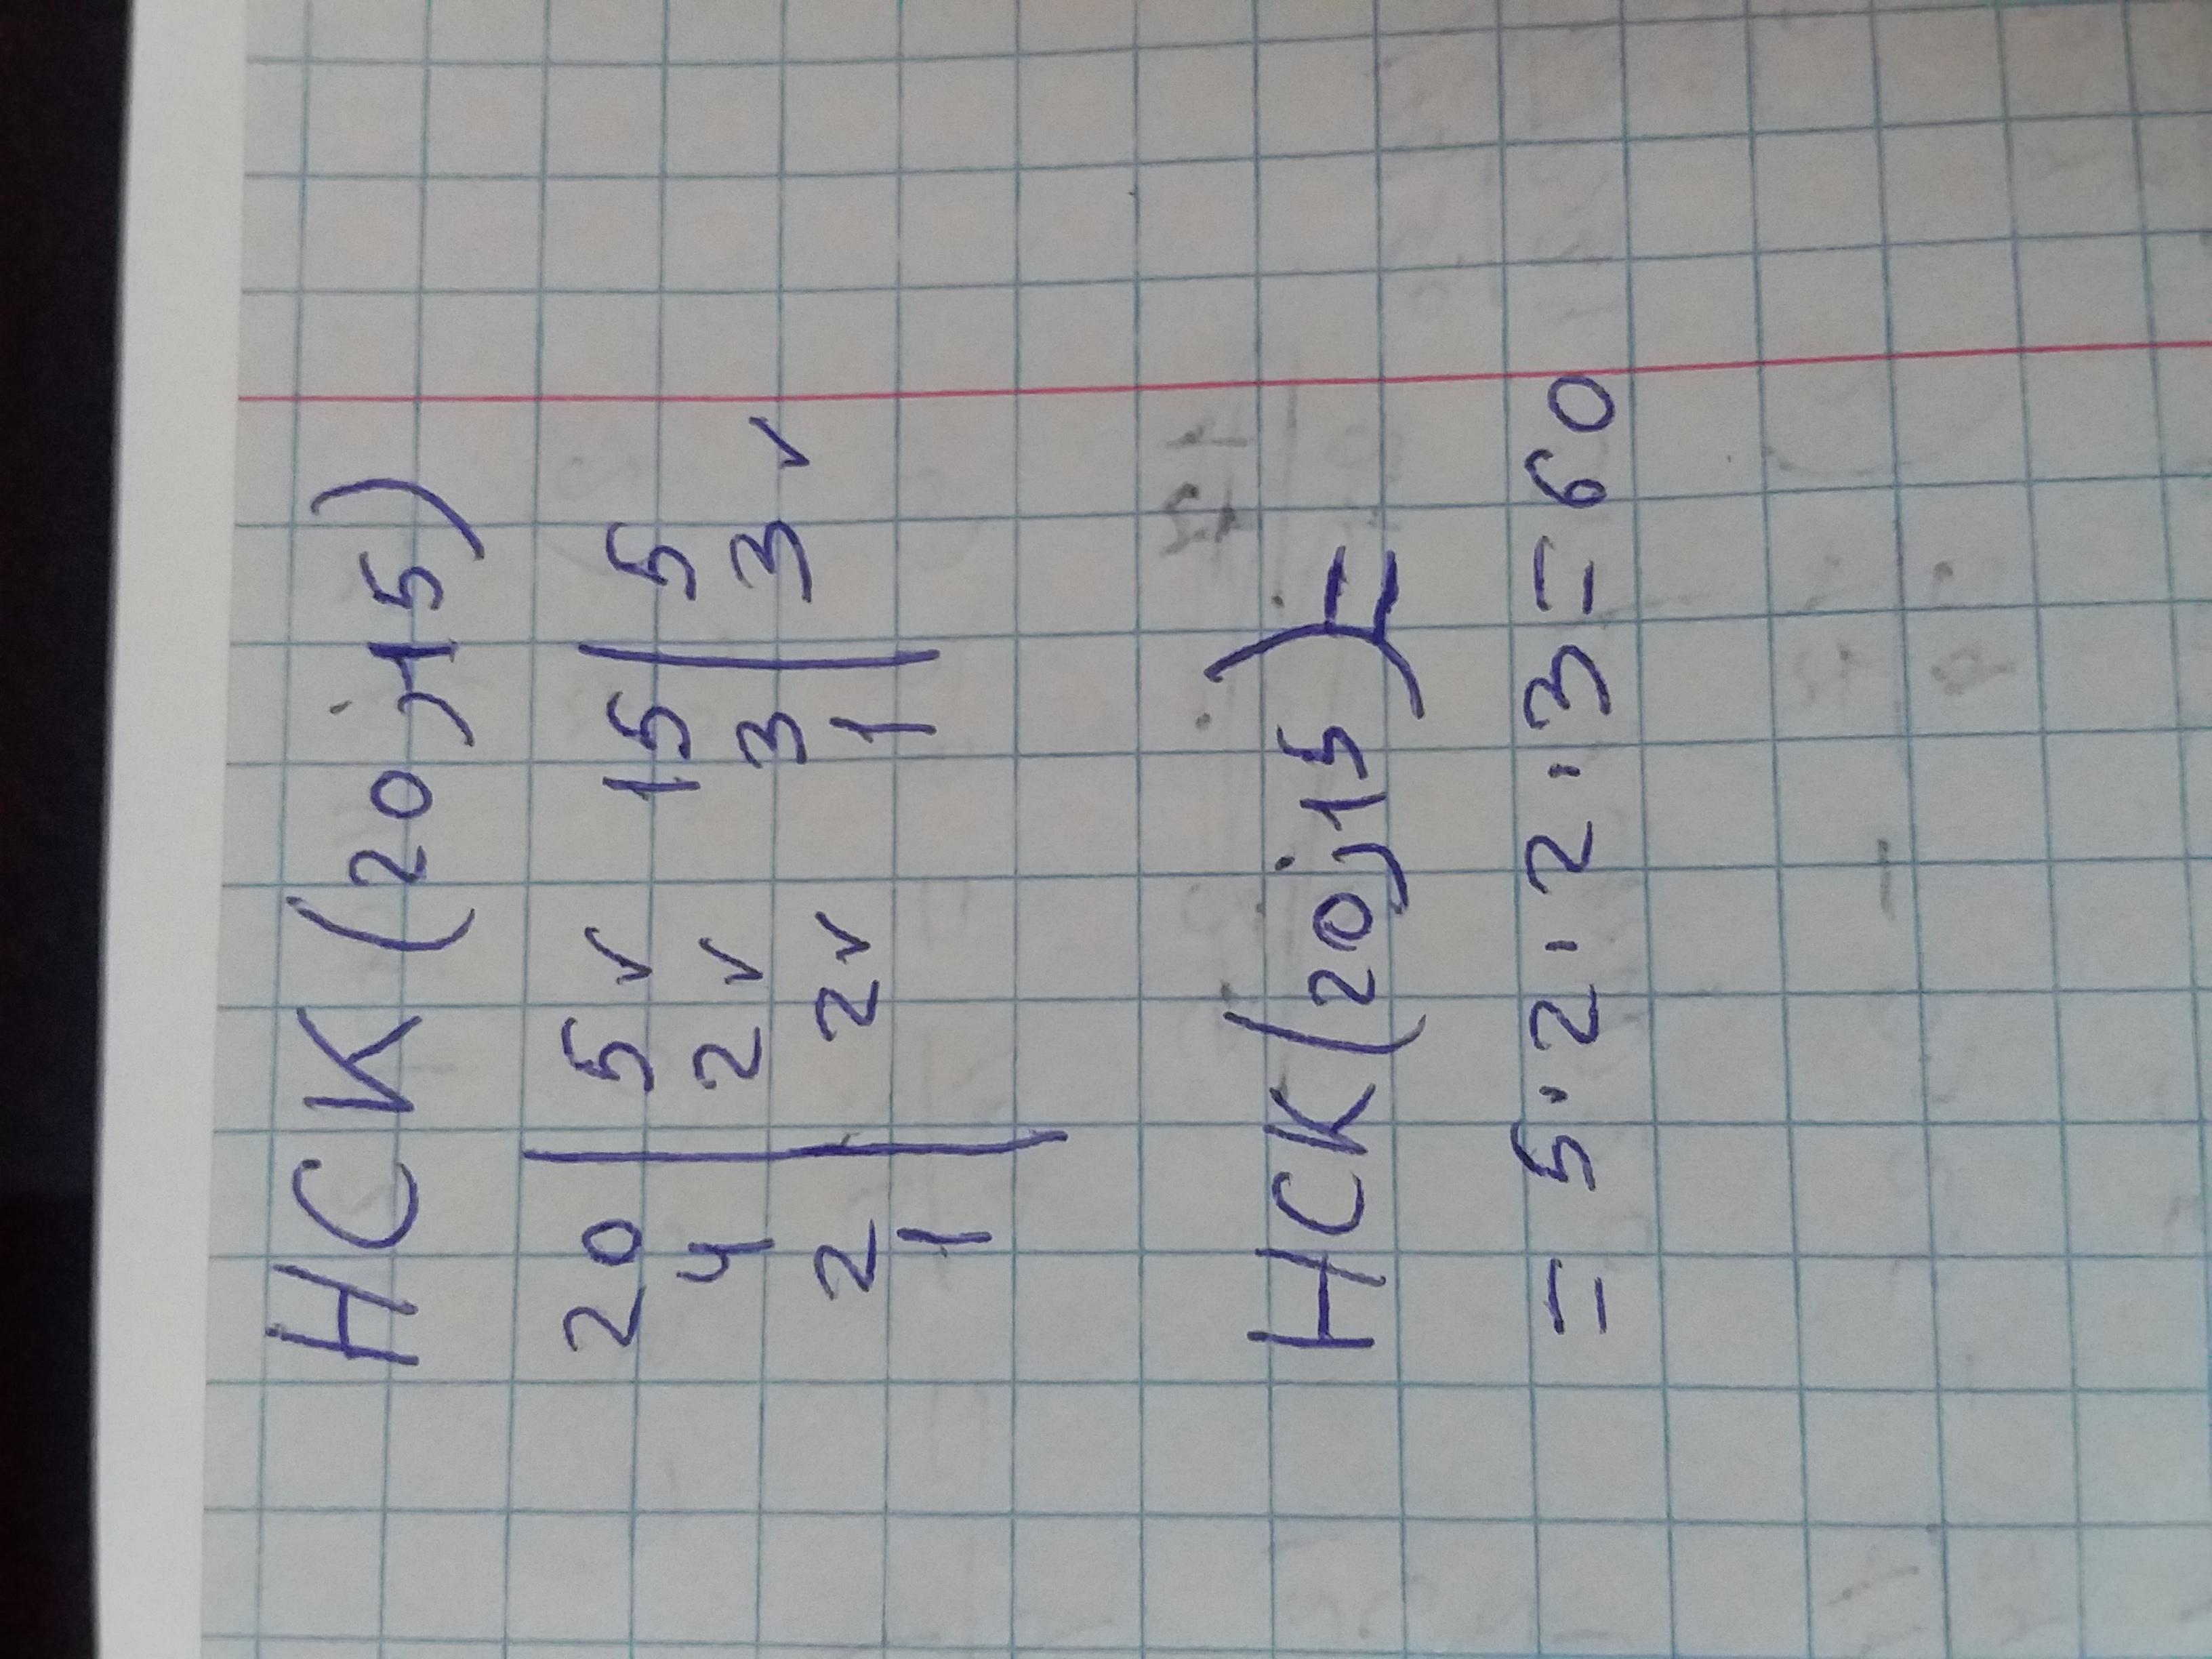 НСК (20;15)
20 | 5 v 15 | 5
4 | 2 v 3 | 3 v
2 | 2 v 1
1
НСК (20;15) =
= 5·2·2·3=60